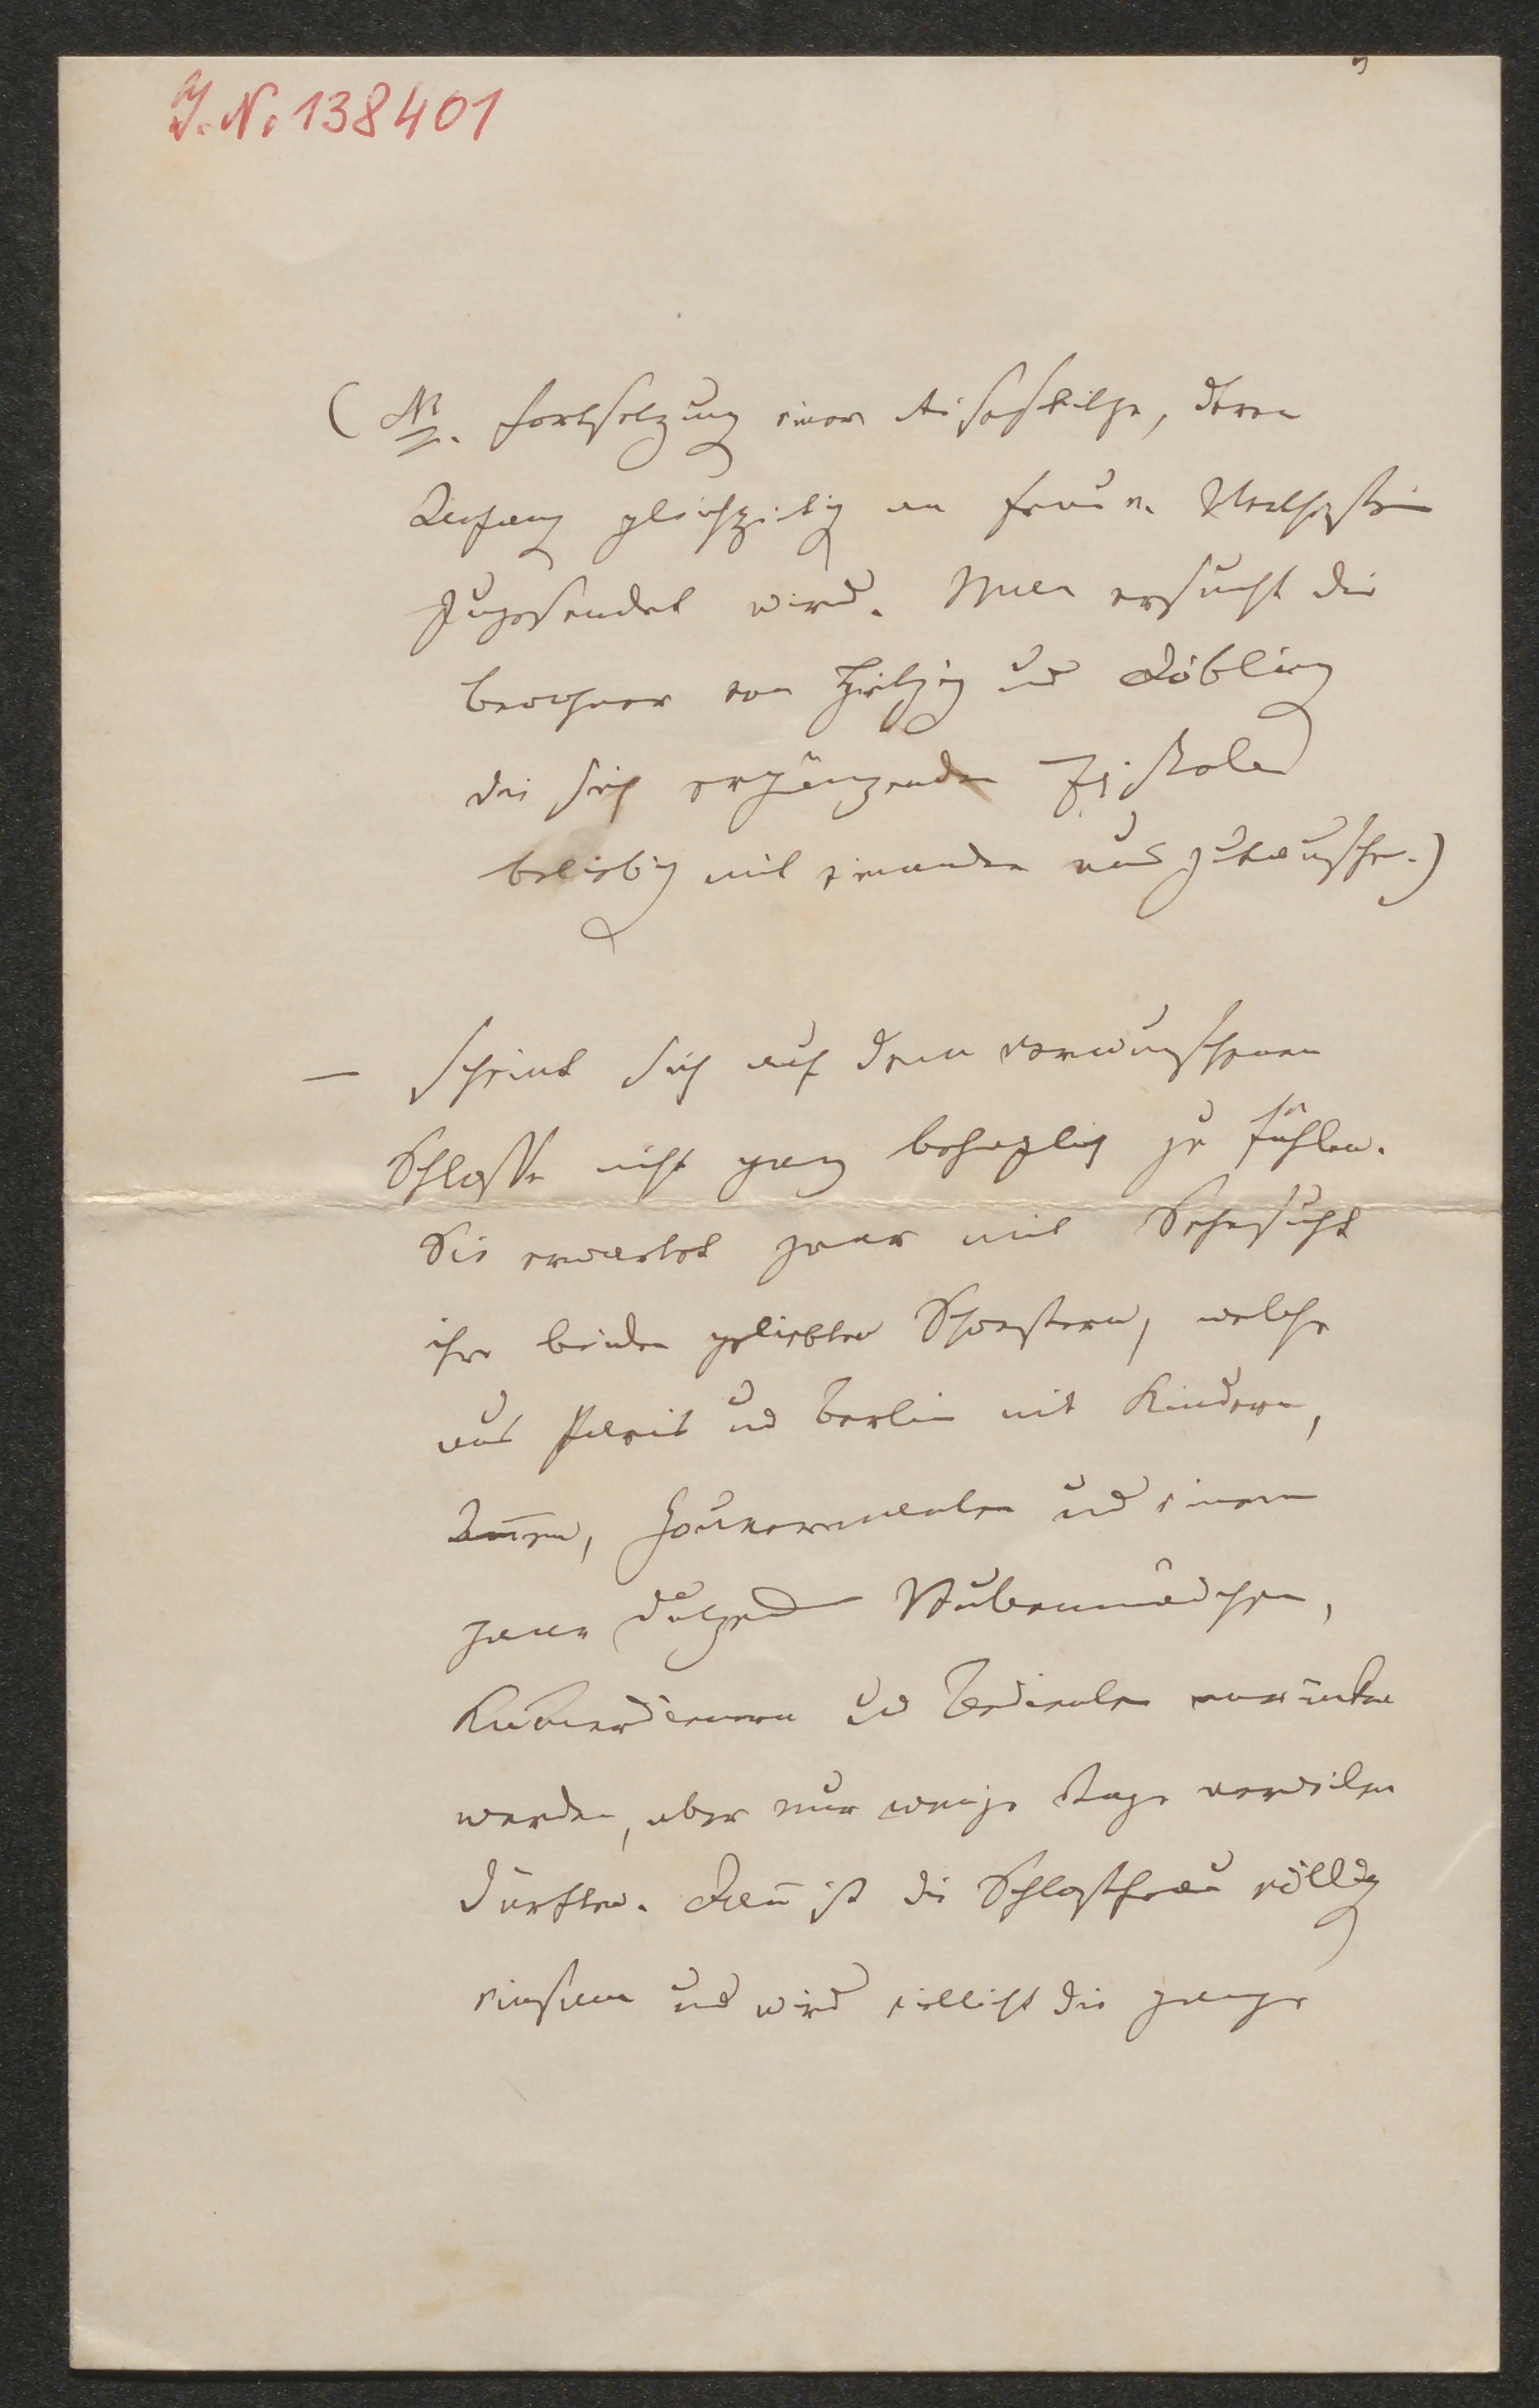 J. N. 138401
(NB. Fortsetzung einer Reiseskitze, deren
Anfang gleichzeitig an Frau v. Werthheimstein
zugesendet wird. Man ersucht die
Bewohner von Hietzing und Döbling
die sich ergänzenden Episteln
beliebig mit einander auszutauschen.)
— scheint sich auf dem verwunschenen
Schlosse nicht ganz behaglich zu fühlen.
Sie erwartet zwar mit Sehnsucht
ihre beiden geliebten Schwestern, welche
aus Paris und Berlin mit Kindern,
Am̅en, Gouvernanten und einem
paar Dutzend Stubenmädchen,
Kam̅erdienern und Bedienten anrücken
werden, aber nur wenige Tage verweilen
dürften. Dan̅ ist die Schloßfrau völlig
einsam und wird vielleicht die ganze